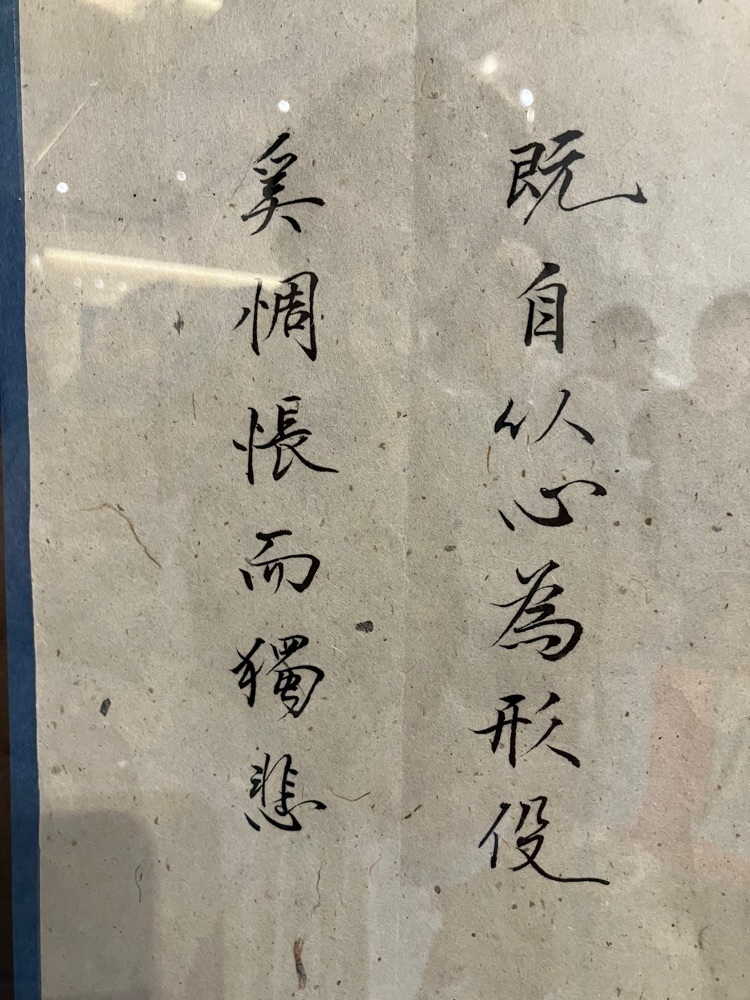 既自以心為形役
奚惆悵而獨悲